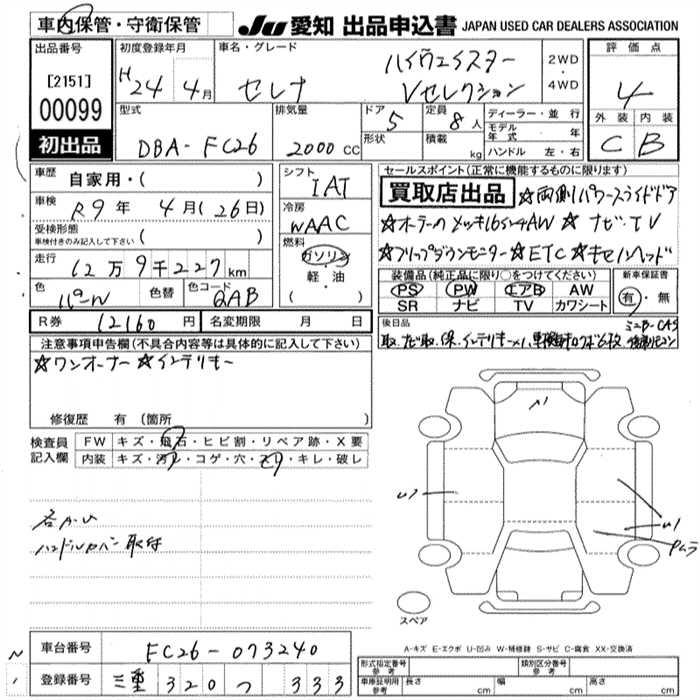 車内保管・守衛保管
JU 愛知 出品申込書 JAPAN USED CAR DEALERS ASSOCIATION
出品番号
[2151]
00099
初出品
初度登録年月
H24年 4月
車名・グレード
セレナ
ハイウェイスター
Vセレクション
2WD
・
4WD
評価点
4
外装 内装
C B
型式
DBA-FC26
排気量
2000 CC
ドア 5
形状
定員 8人
積載 kg
ディーラー・並行
モデル年式 年
ハンドル 左・右
車歴 自家用・( )
車検 R9年 4月(26日)
受検形態
車検付きのみ記入して下さい ( )
走行 12万9千227km
色 パール
色替
色コード QAB
シフト
IAT
冷房
WAAC
燃料
ガソリン
軽・油
( )
セールスポイント(正常に機能するものに限る)
買取店出品 ☆両側パワースライドドア
☆ナビ・TV
☆フリップダウンモニター ☆ETC ☆
装備品(純正品に限り○をつけてください)
PS PW エアB AW
SR ナビ TV カワシート
新車保証書
有・無
R券 12160円
名変期限 月 日
後日品
注意事項申告欄(不具合内容等は具体的に記入して下さい)
☆ワンオーナー ☆インテリキー
修復歴 有 (箇所 )
検査員
記入欄
FW キズ・飛石・ヒビ割・リペア跡・X要
内装 キズ・汚レ・コゲ・穴・スリ・キレ・破レ
各A・U
ハンドルカバー取付
A1
U2
U1
スペア
A-キズ E-エクボ U-凹み W-補修跡 S-サビ C-腐食 XX-交換済
車台番号 FC26-073240
登録番号 三重 320 つ 333
形式指定番号
参考
類別区分番号
参考
車庫証明用
参考
長さ cm
幅 cm
高さ cm